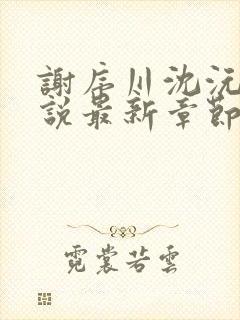 謝辰川沈沅
說最新章節
霓裳若雲